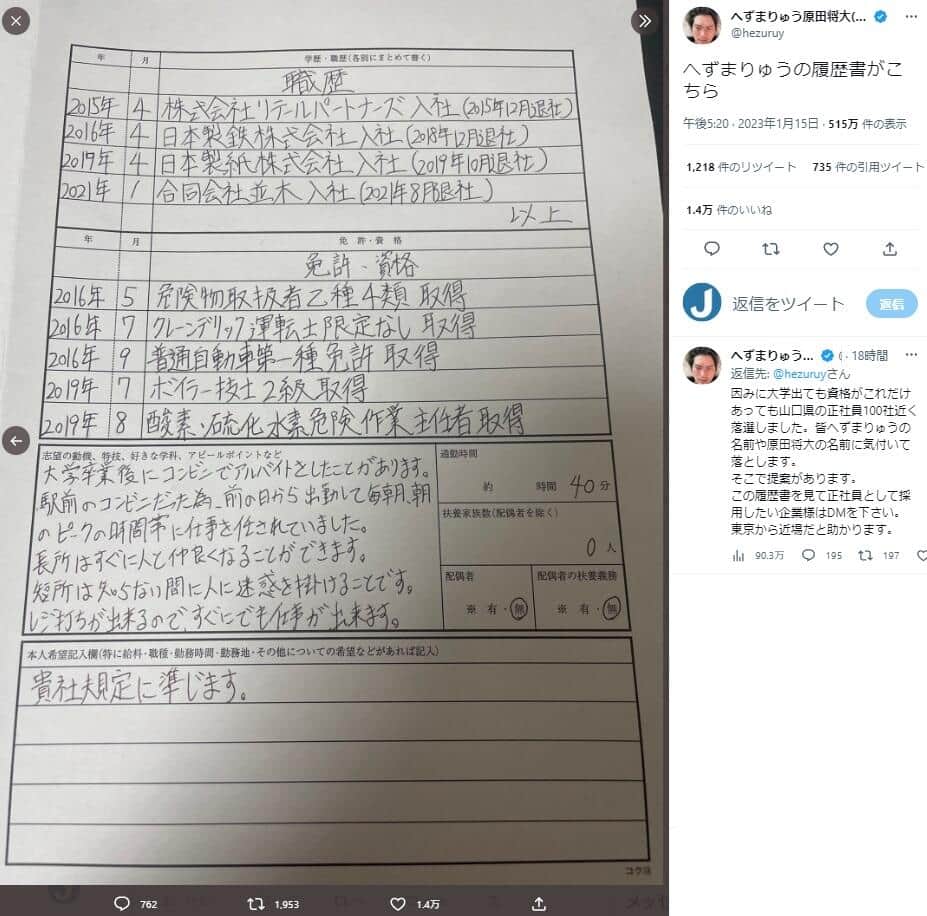 年 月 学歴・職歴(各別にまとめて書く)
職歴
2015年 4 株式会社リテールパートナーズ 入社 (2015年12月退社)
2016年 4 日本製鉄株式会社 入社 (2018年12月退社)
2019年 4 日本製紙株式会社 入社 (2019年10月退社)
2021年 1 合同会社並木 入社 (2021年8月退社)
以上
年 月 免許・資格
免許・資格
2016年 5 危険物取扱者乙種4類 取得
2016年 7 クレーンデリック運転士限定なし 取得
2016年 9 普通自動車第一種免許 取得
2019年 7 ボイラー技士2級 取得
2019年 8 酸素・硫化水素危険作業主任者 取得
志望の動機、特技、好きな学科、アピールポイントなど
大学卒業後にコンビニでアルバイトをしたことがあります。
駅前のコンビニだった為、前の日から出勤して毎朝、朝
のピークの時間帯に仕事を任されていました。
長所はすぐに人と仲良くなることができます。
短所は知らない間に人に迷惑を掛けることです。
レジ打ちが出来るので、すぐにでも仕事が出来ます。
通勤時間
約 時間 40分
扶養家族数(配偶者を除く)
0人
配偶者
※ 有・無
配偶者の扶養義務
※ 有・無
本人希望記入欄(特に給料・職種・勤務時間・勤務地・その他についての希望などがあれば記入)
貴社規定に準じます。
コクヨ
762 1,953 1.4万
へずまりゅう原田将大(...
@hezuruy
へずまりゅうの履歴書がこ
ちら
午後5:20 · 2023年1月15日 · 515万 件の表示
1,218 件のリツイート 735 件の引用ツイート
1.4万 件のいいね
J
返信をツイート
返信
へずまりゅう... · 18時間
返信先: @hezuruyさん
因みに大学出ても資格がこれだけ
あっても山口県の正社員100社近く
落選しました。皆へずまりゅうの
名前や原田将大の名前に気付いて
落とします。
そこで提案があります。
この履歴書を見て正社員として採
用したい企業様はDMを下さい。
東京から近場だと助かります。
90.3万 195 197